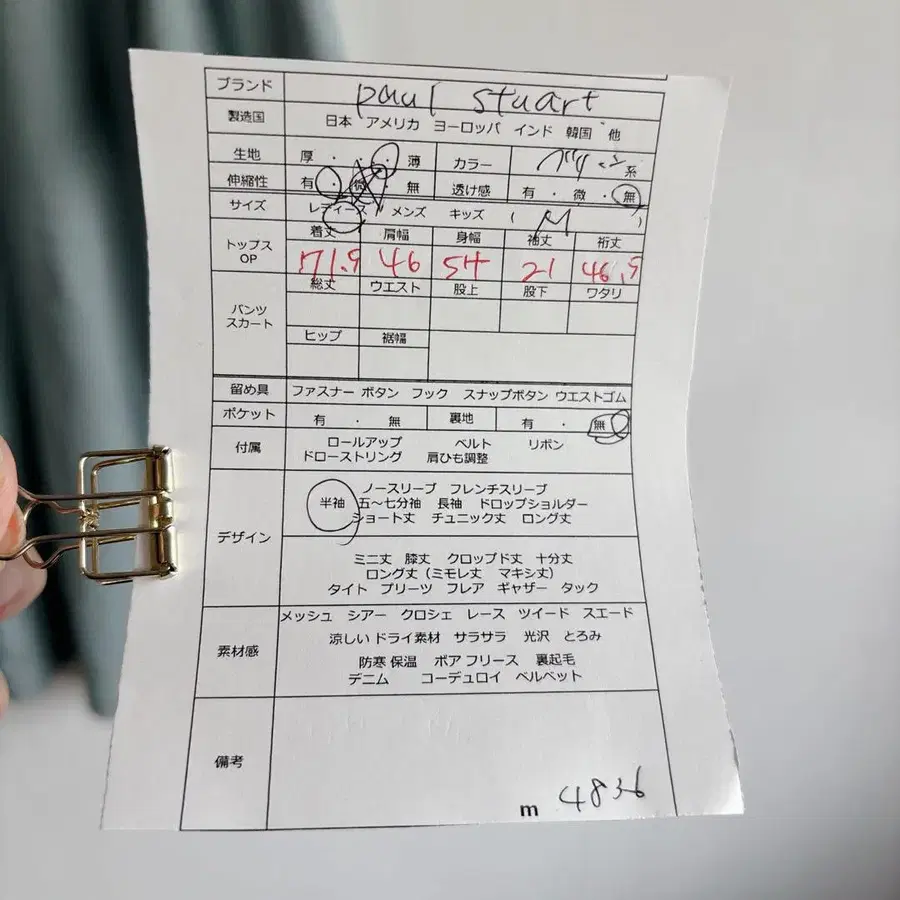 ブランド paul stuart
製造国 日本 アメリカ ヨーロッパ インド 韓国 他
生地 厚・・・薄 カラー 系
伸縮性 有・微・無 透け感 有・微・無
サイズ レディース / メンズ キッズ ( M )
トップス OP
着丈 肩幅 身幅 袖丈 裄丈
71.5 46 54 21 46.5
パンツ スカート
総丈 ウエスト 股上 股下 ワタリ
ヒップ 裾幅
留め具 ファスナー ボタン フック スナップボタン ウエストゴム
ポケット 有・無 裏地 有・無
付属 ロールアップ ベルト リボン
ドローストリング 肩ひも調整
デザイン
ノースリーブ フレンチスリーブ
半袖 五〜七分袖 長袖 ドロップショルダー
ショート丈 チュニック丈 ロング丈
ミニ丈 膝丈 クロップド丈 十分丈
ロング丈(ミモレ丈 マキシ丈)
タイト プリーツ フレア ギャザー タック
素材感
メッシュ シアー クロシェ レース ツイード スエード
涼しい ドライ素材 サラサラ 光沢 とろみ
防寒 保温 ボア フリース 裏起毛
デニム コーデュロイ ベルベット
備考
m 4836